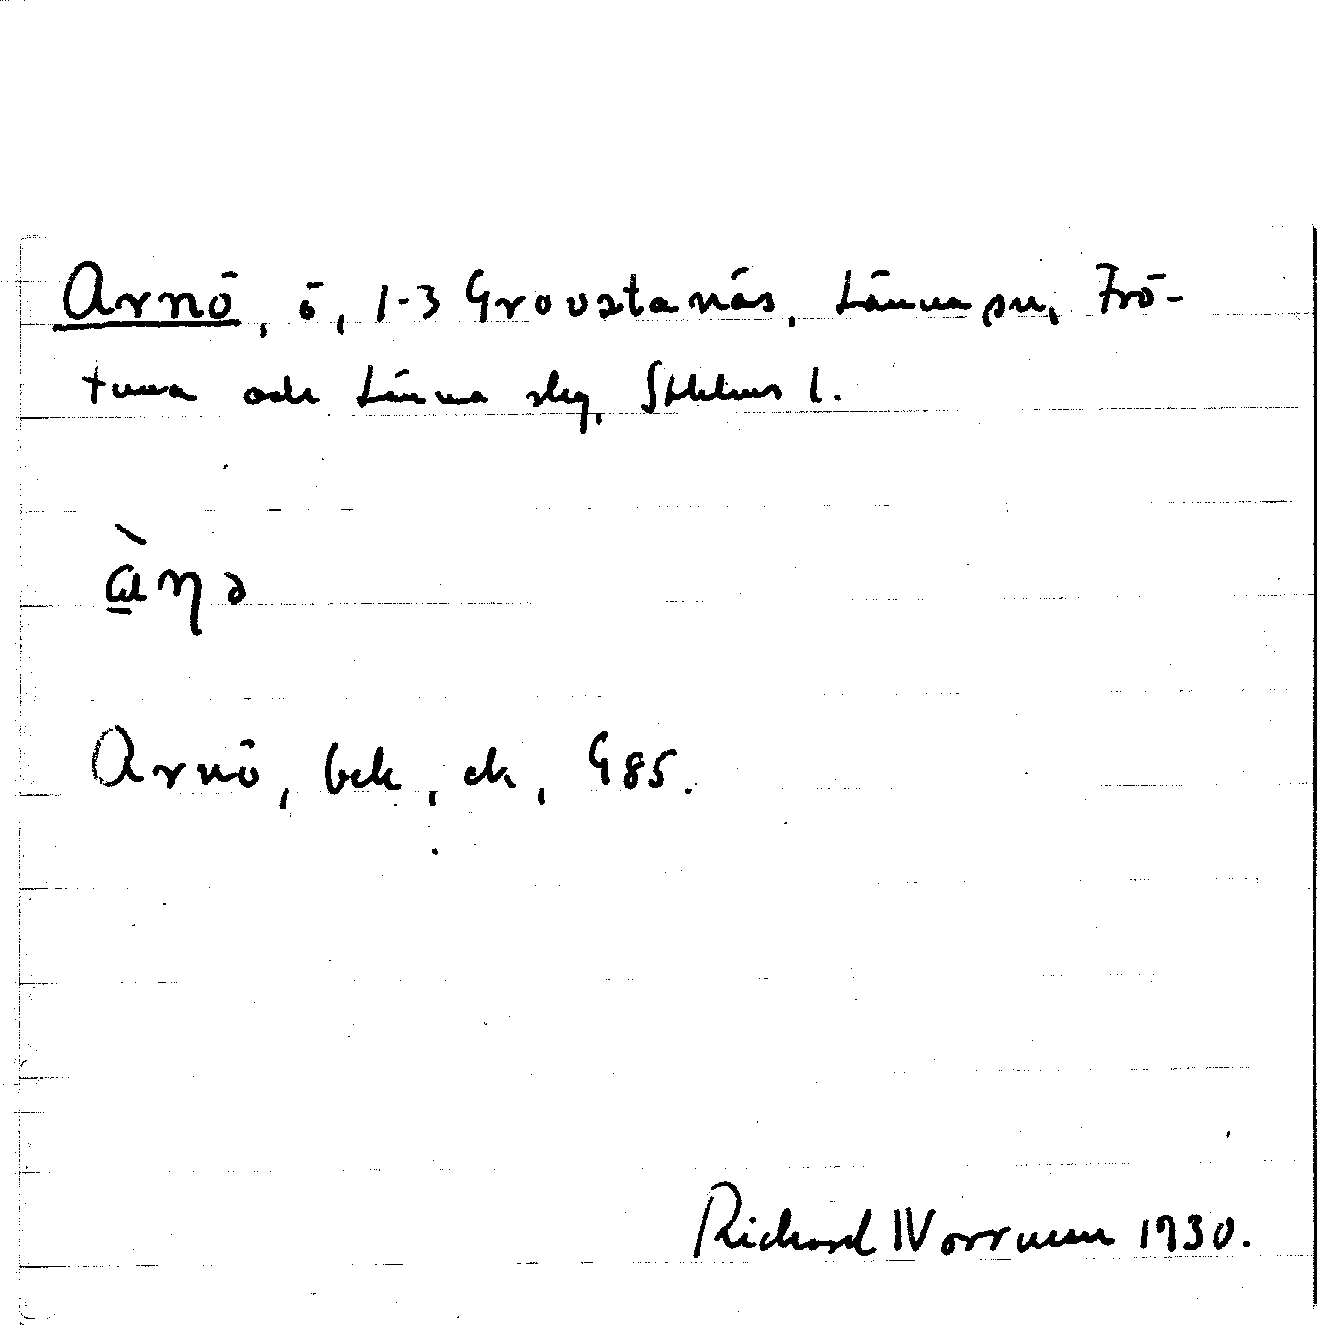 Arnö, ö, 1-3 Grovstanäs, Länna sn, Frö-
tuna och Länna slg, Sthlms l.
ὰηə
Arnö, bek, ek, G85.
Richard Norrman 1930.